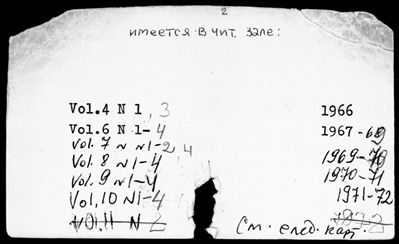 2
имеется в чит. зале:
Vol.4 N 1, 3 1966
Vol.6 N 1-4 1967-68
Vol. 7 N N1-2 4
Vol. 8 N1-4 1969-70
Vol. 9 N1-4 1970-71
Vol, 10 N1-4 1971-72
Vol. 11 N 2
См. след. кар.